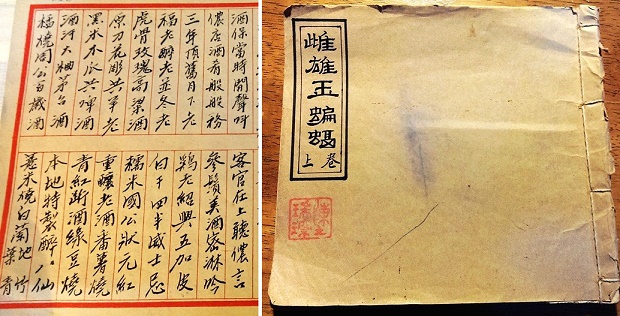 酒保當時開聲叫
客官在上聽儂言
儂店酒肴般般務
參鬚美酒密淋吟
三年頂舊月下老
鷄老紹興五加皮
福老醉老並冬老
白干四半威士忌
虎骨玫瑰高梁酒
糯米國公狀元紅
原刀花彫共老
重釀老酒番薯燒
黑米木瓜共啤酒
青紅酒綠豆燒
酒汗大粬茅台酒
本地特製醉八仙
橘燒周公百歲酒
薏米燒白蘭地竹葉青
雌雄玉蝙蝠
上卷